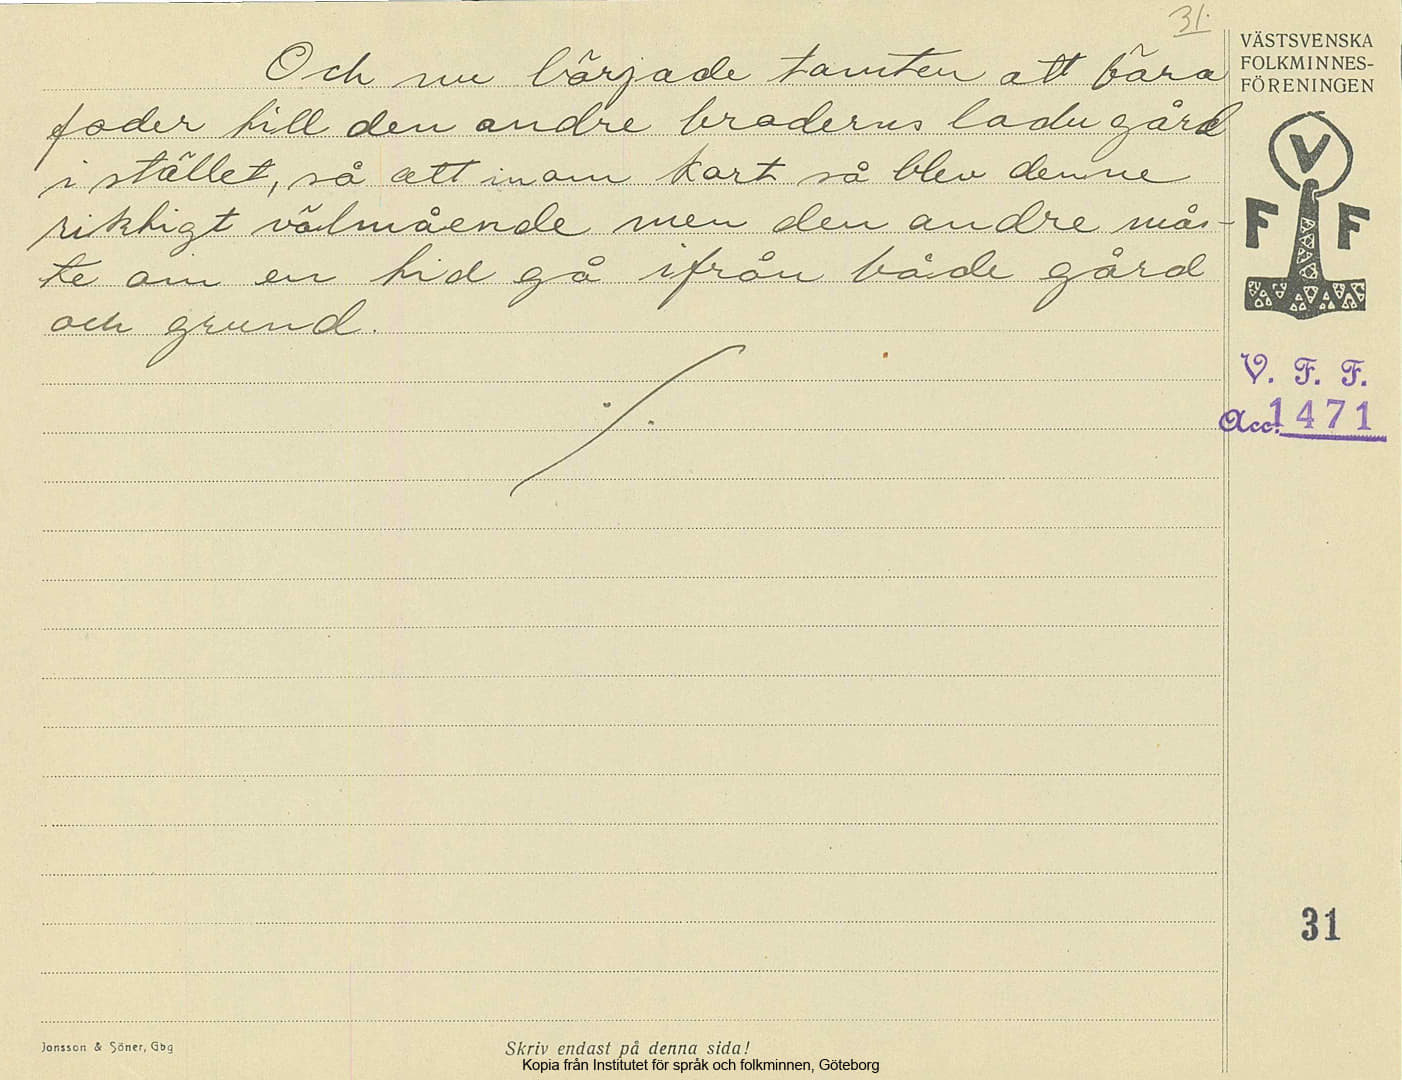 31.
Och nu började tomten att bära
foder till den andre broderns ladugård
i stället, så att inom kort så blev denne
riktigt välmående men den andre mås-
te om en tid gå ifrån både gård
och grund.
VÄSTSVENSKA
FOLKMINNES-
FÖRENINGEN
V
F F
V. F. F.
Acc. 1471
31
Jonsson & Söner, Gbg
Skriv endast på denna sida!
Kopia från Institutet för språk och folkminnen, Göteborg